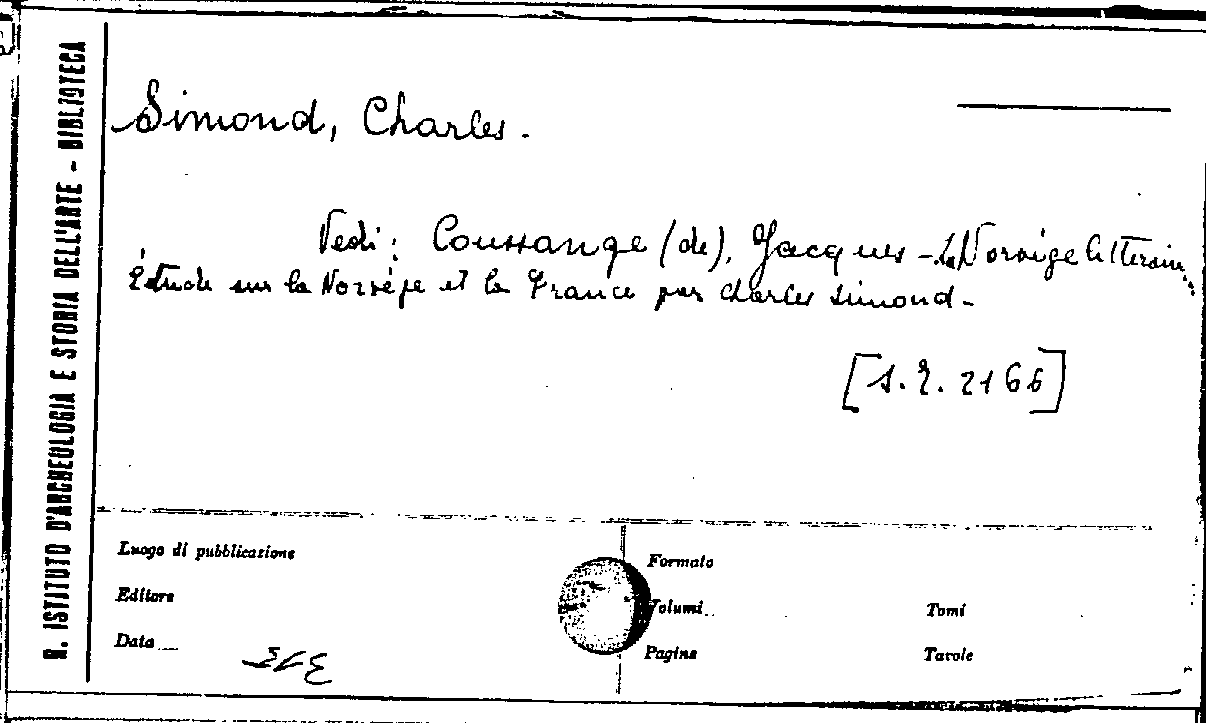 R. ISTITUTO D'ARCHEOLOGIA E STORIA DELL'ARTE - BIBLIOTECA
Simond, Charles.
Vedi: Coussange (de), Jacques - La Norvège littéraire,
Étude sur la Norvège et la France par Charles Simond -
[S.R. 2166]
Luogo di pubblicazione
Formato
Editore
Volumi
Tomi
Data
Pagine
Tavole